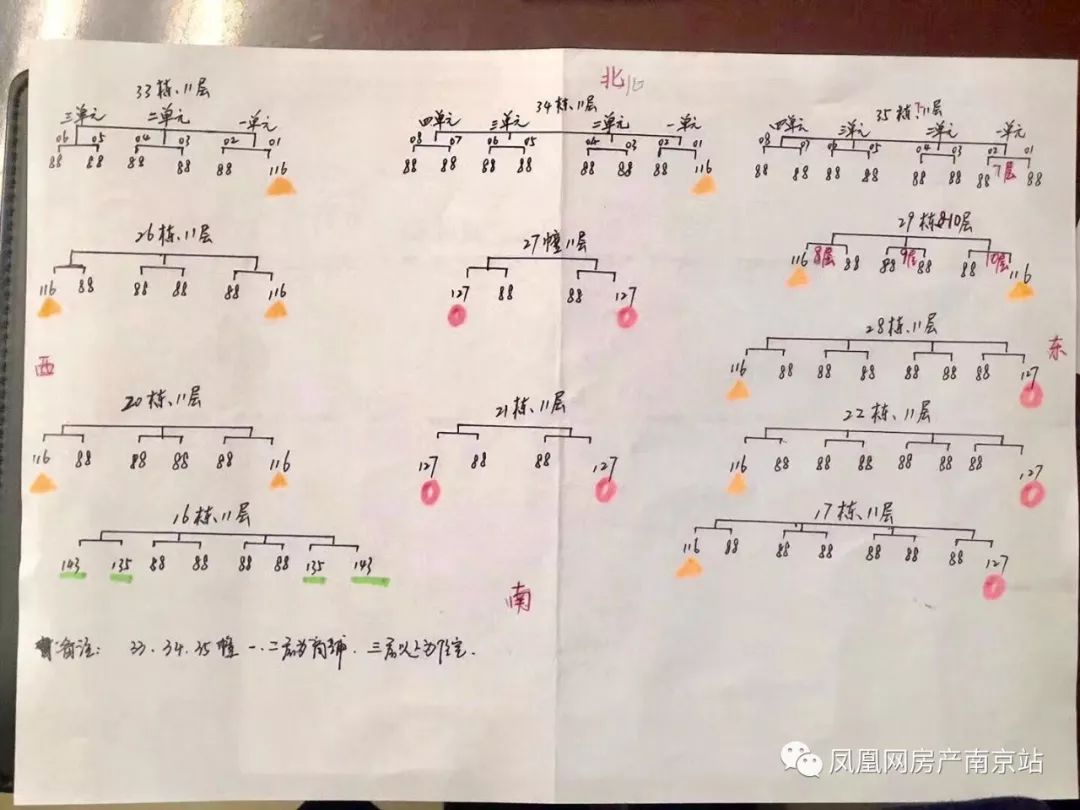 北
33栋、11层
三单元 二单元 一单元
06 05 04 03 02 01
88 88 88 88 88 116
34栋、11层
四单元 三单元 二单元 一单元
08 07 06 05 04 03 02 01
88 88 88 88 88 88 88 116
35栋、11层
四单元 三单元 二单元 一单元
08 07 06 05 04 03 02 01
88 88 88 88 88 88 88 7层 88
26栋、11层
116 88 88 88 88 116
27幢、11层
127 88 88 127
29栋8-10层
116 8层 88 88 9层 88 88 10层 116
28栋、11层
116 88 88 88 88 88 88 127
西
东
20栋、11层
116 88 88 88 88 116
21栋、11层
127 88 88 127
22栋、11层
116 88 88 88 88 88 88 127
16栋、11层
143 135 88 88 88 88 135 143
17栋、11层
116 88 88 88 88 88 88 127
南
备注: 33.34.35幢 一.二层为商铺.三层以上为住宅.
凤凰网房产南京站